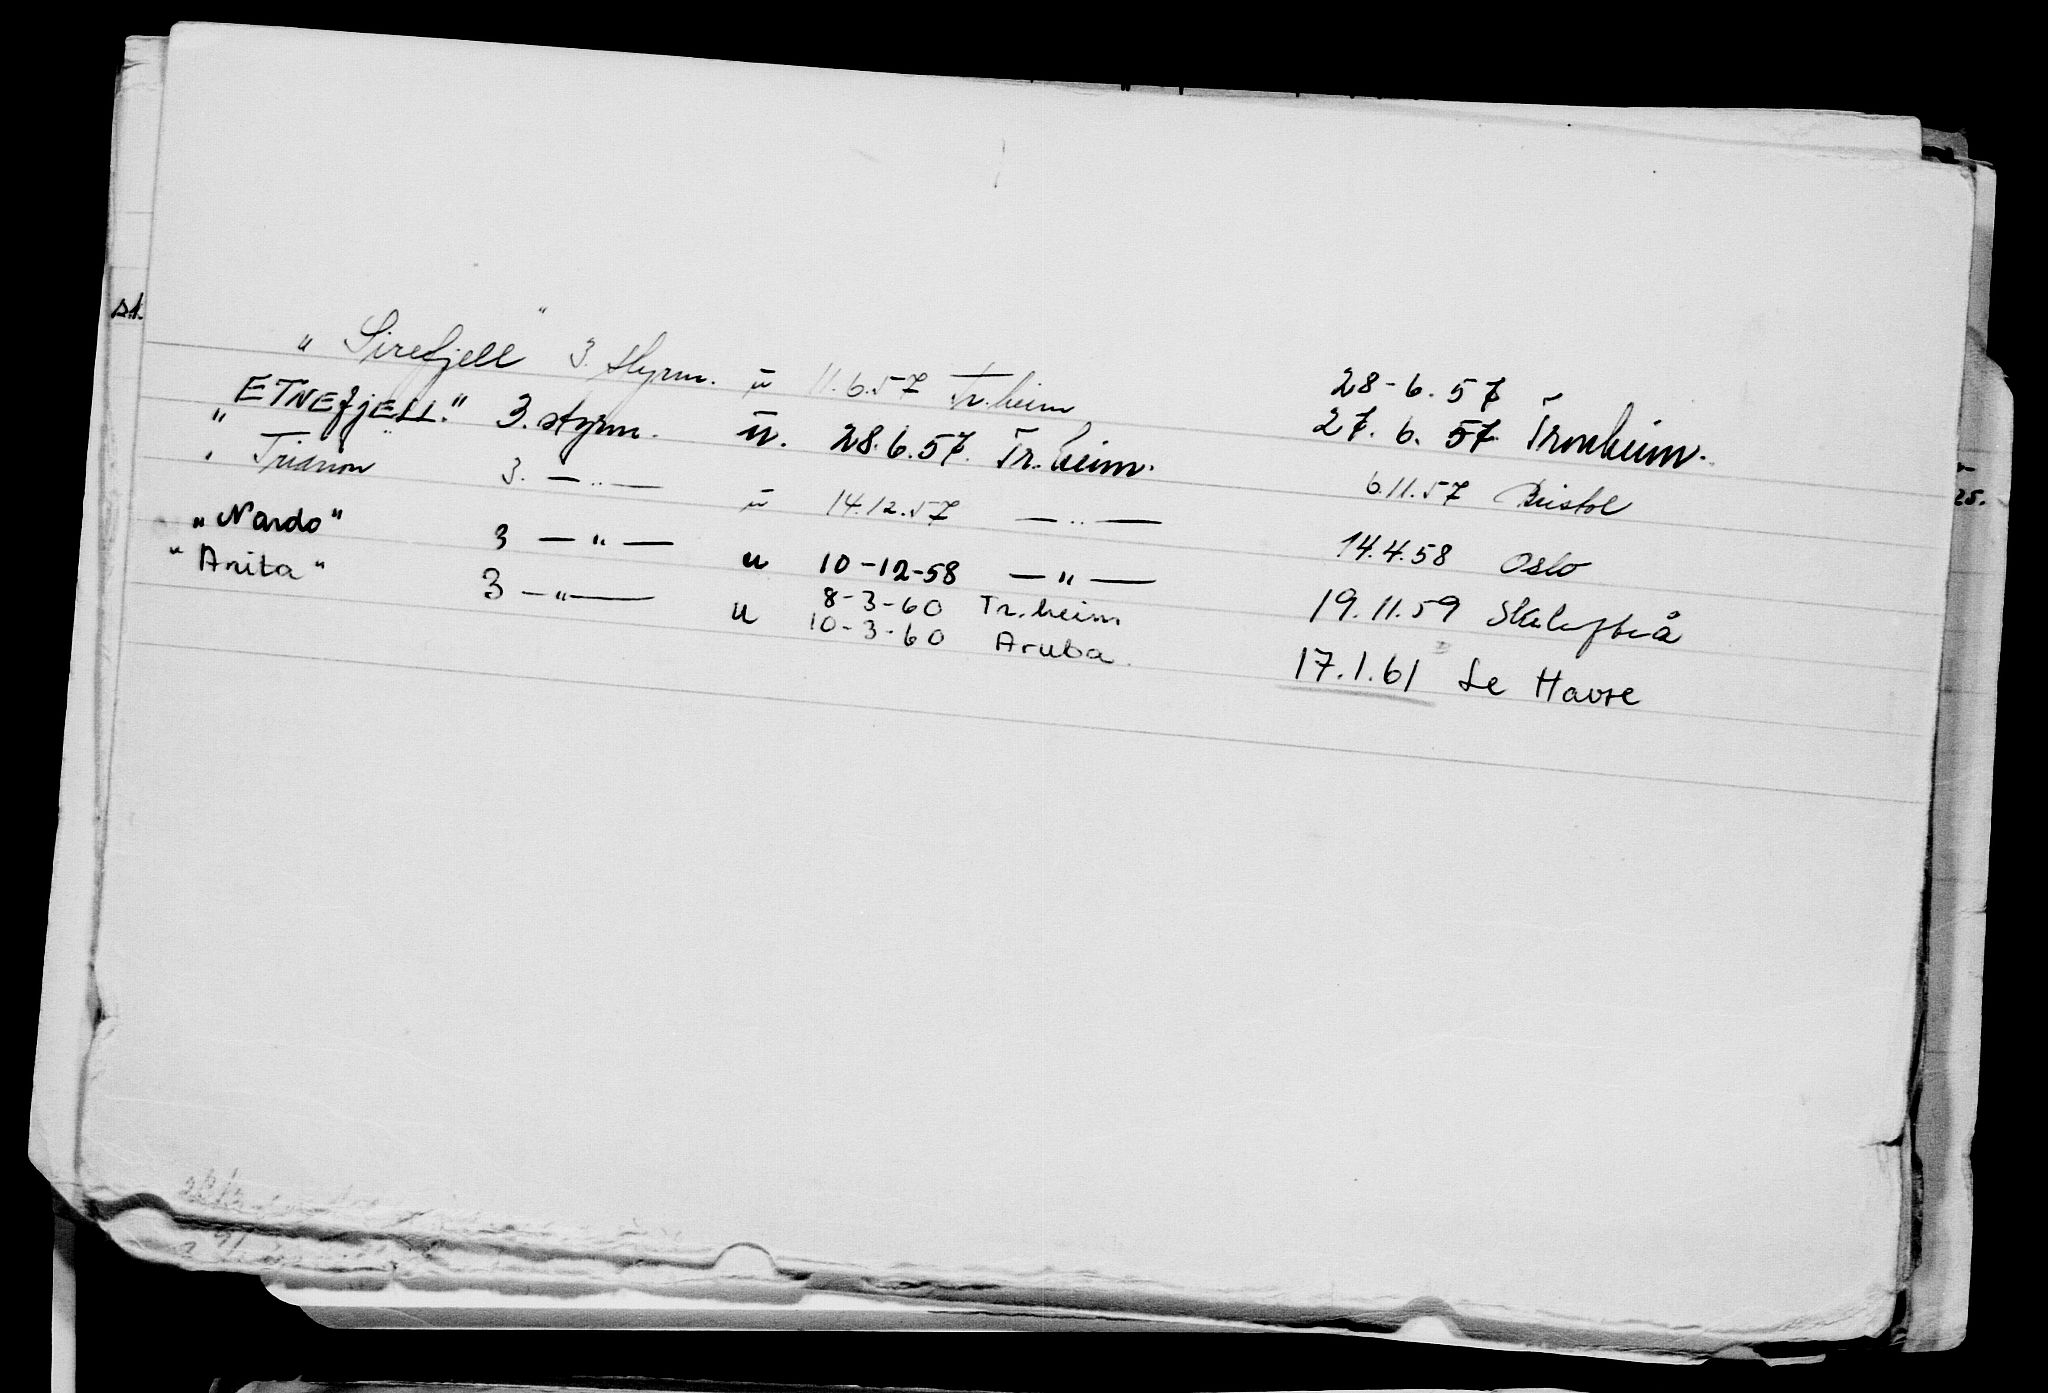 "Sirefjell" 3. styrm. u 11.6.57 Tr.heim 28-6.57
"ETNEfjELL." 3. styrm. u. 28.6.57. Tr.heim. 27.6.57 Tronheim.
" Trianon " 3. — " — u 14.12.57 — " — 6.11.57 Bristol
"Nardo" 3 — " — u 10-12-58 — " — 14.4.58 Oslo
"Anita" 3 — " — u 8-3-60 Tr.heim 19.11.59 Skelefteå
10-3-60 Aruba. 17.1.61 Le Havre
s.t.
25.